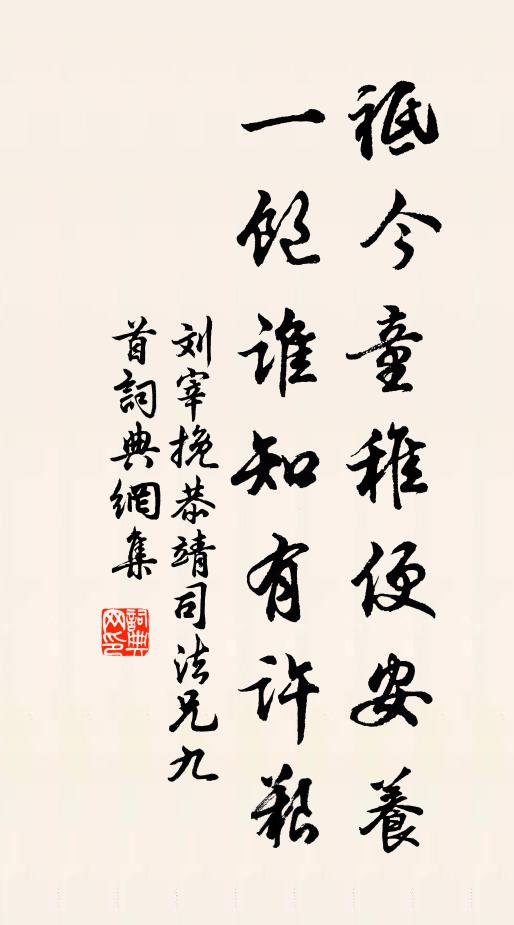 祗今童稚便安養
一飽誰知有許艱
刘宰挽恭靖司法兄九
首詞典網集
詞典網印